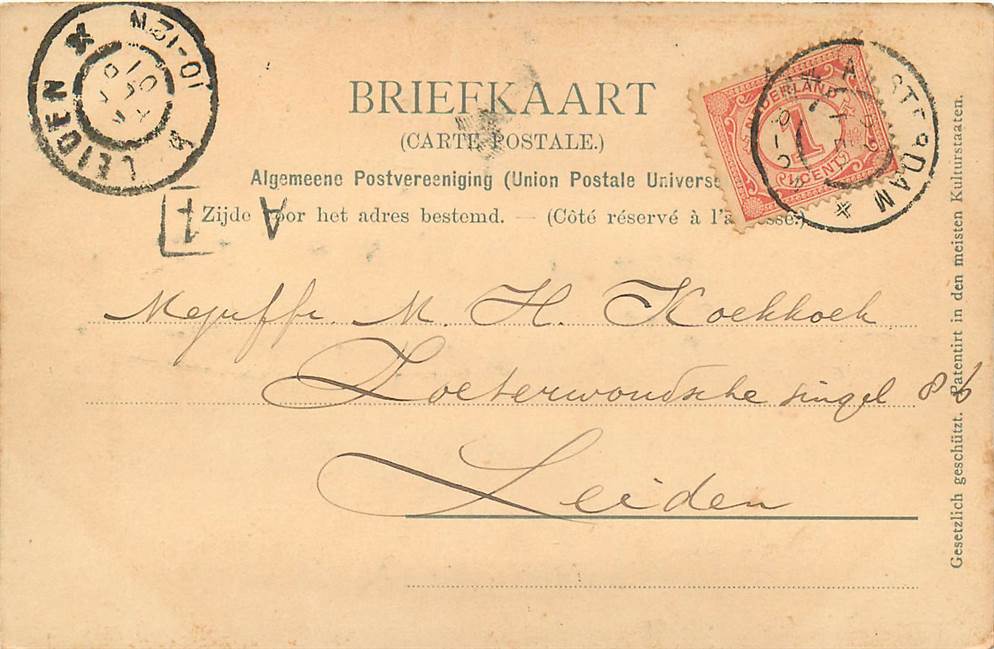 BRIEFKAART
(CARTE POSTALE.)
Algemeene Postvereeniging (Union Postale Universe
Zijde voor het adres bestemd. — (Côté réservé à l'adresse.)
Mejuffr. M. H. Koekkoek
Zoeterwoudsche singel 86
Leiden
Gesetzlich geschützt. Patentirt in den meisten Kulturstaaten.
LEIDEN
10-12N
NEDERLAND
1
CENT
AMSTERDAM
A
1